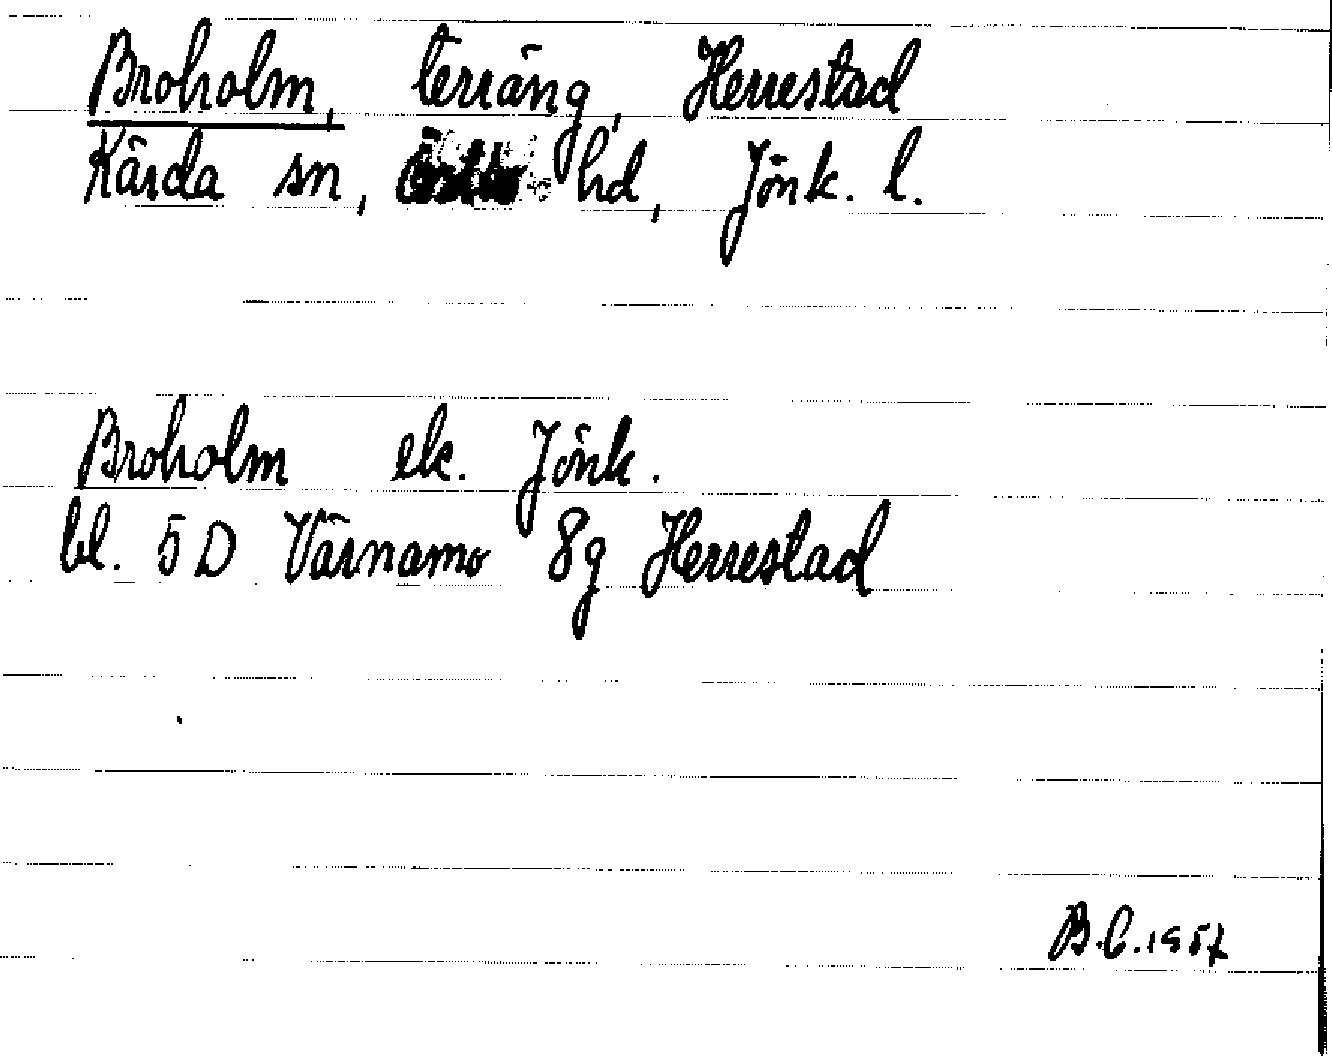 Broholm, terräng, Herrestad
Kärda sn, Östbo hd, Jönk. l.
Broholm ek. Jönk.
bl. 5 D Värnamo 8g Herrestad
B.C. 1957